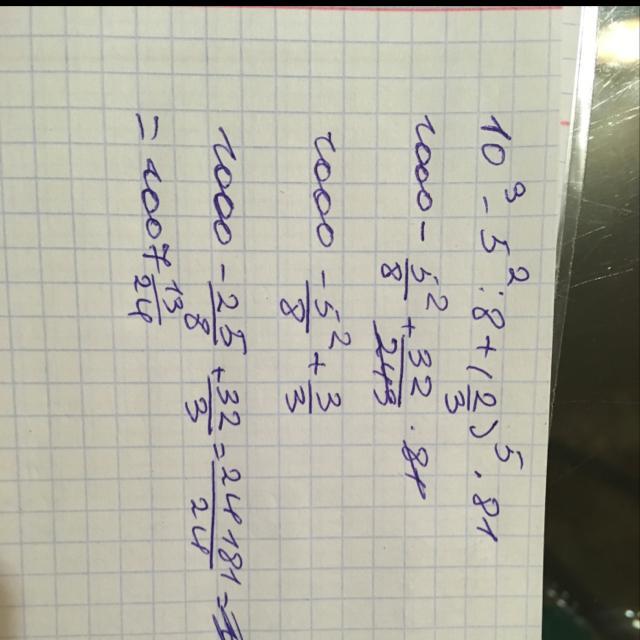 10³ - 5² : 8 + (2/3)⁵ · 81
1000 - 5²/8 + 32/243 · 81
1000 - 5²/8 + 3/3
1000 - 25/8 + 32/3 = 24181/24 =
= 1007 13/24